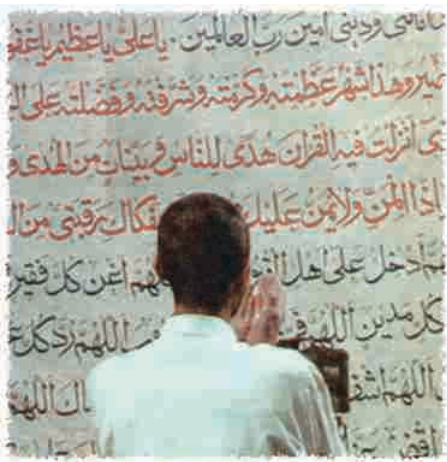 ودینی امین رب العالمین . یا علی یا عظیم یا غفو
وهذا شهر عظمته وکرمته وشرفته وفضلته علی
انزلت فیه القران هدی للناس وبینات من الهدی و
اذا المن ولا یمن علیک فکاک رقبتی من
ادخل علی اهل اغن کل فقیر
کل مدین اللهم اللهم رد کل
اللهم اشف اللهم
اقض